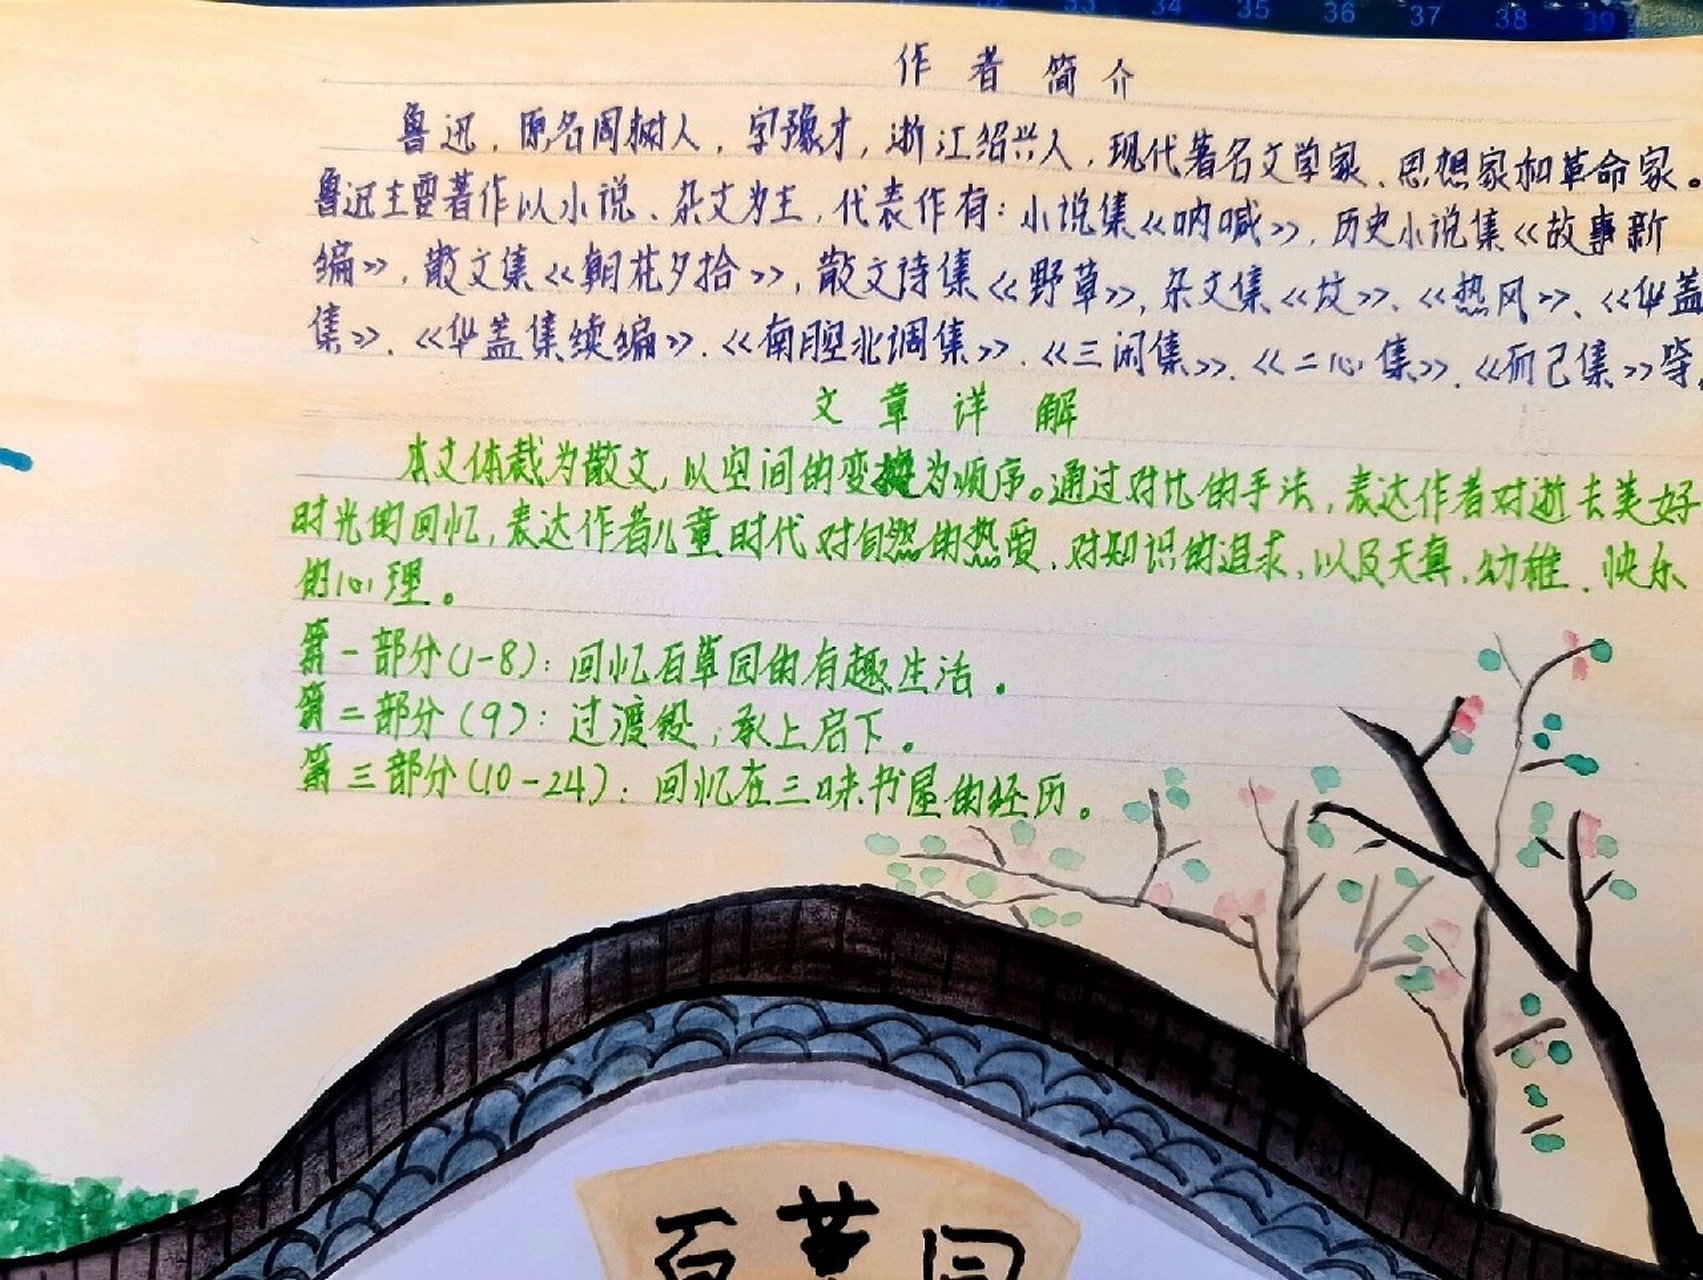 33 34 35 36 37 38 39
作者简介
鲁迅，原名周树人，字豫才，浙江绍兴人，现代著名文学家、思想家和革命家。
鲁迅主要著作以小说、杂文为主，代表作有：小说集《呐喊》，历史小说集《故事新
编》，散文集《朝花夕拾》，散文诗集《野草》，杂文集《坟》、《热风》、《华盖
集》、《华盖集续编》、《南腔北调集》、《三闲集》、《二心集》、《而己集》等。
文章详解
本文体裁为散文，以空间的变换为顺序。通过对比的手法，表达作者对逝去美好
时光的回忆，表达作者儿童时代对自然的热爱、对知识的追求，以及天真、幼稚、快乐
的心理。
第一部分(1-8)：回忆百草园的有趣生活。
第二部分(9)：过渡段，承上启下。
第三部分(10-24)：回忆在三味书屋的经历。
百草园